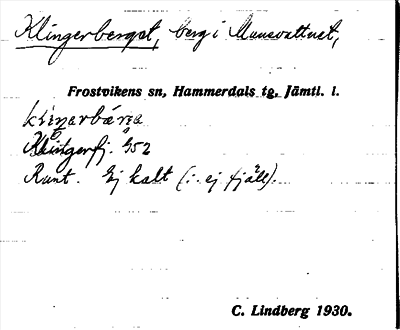 Klingerberget, berg i Munsvattnet,
Frostvikens sn, Hammerdals tg, Jämtl. l.
kliŋerbárre
Klingerfj. G52
Runt. Ej kalt (i: ej fjäll).
C. Lindberg 1930.